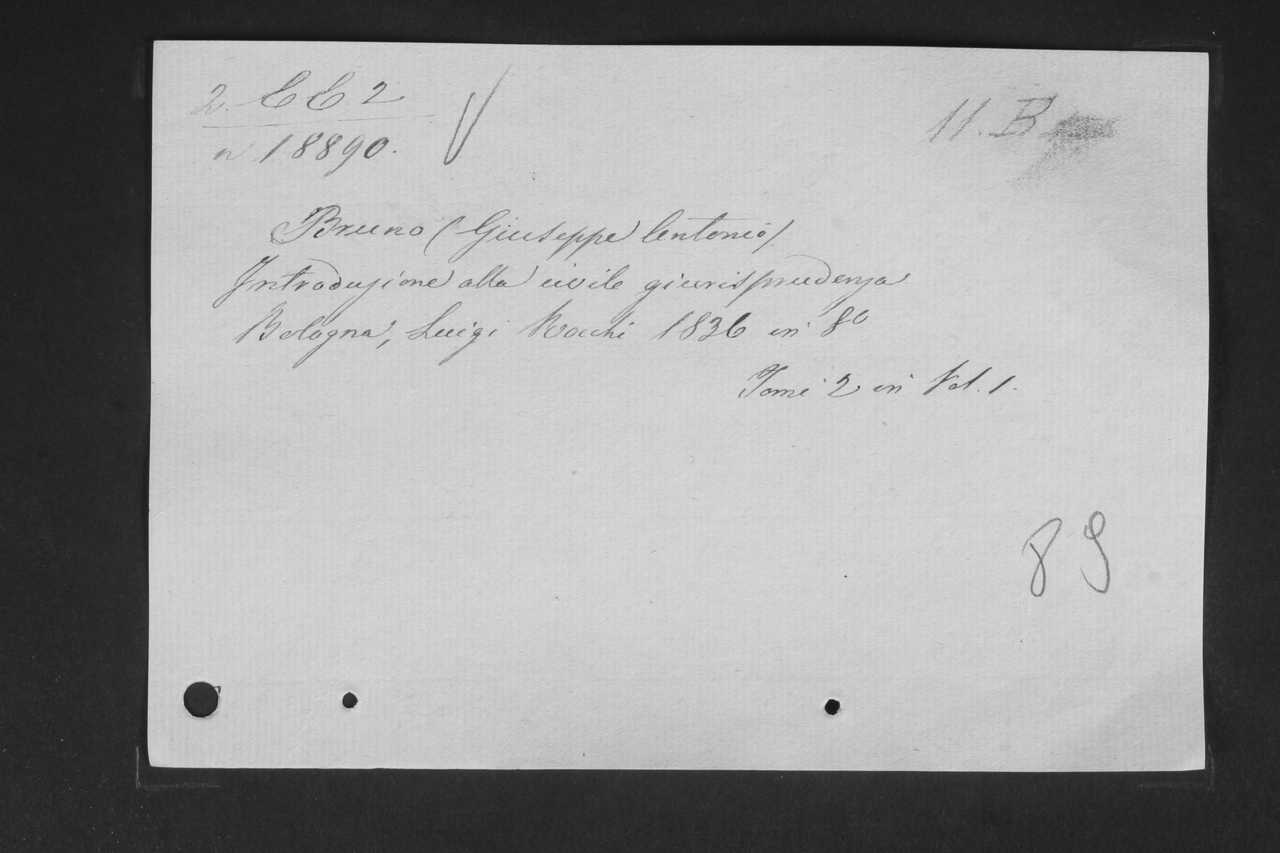 2. CC 2
11. B
n. 18890.
Bruno (Giuseppe Antonio)
Introduzione alla civile giurisprudenza
Bologna, Luigi Rocchi 1836 in 8º
Tomi 2 in Vol. 1.